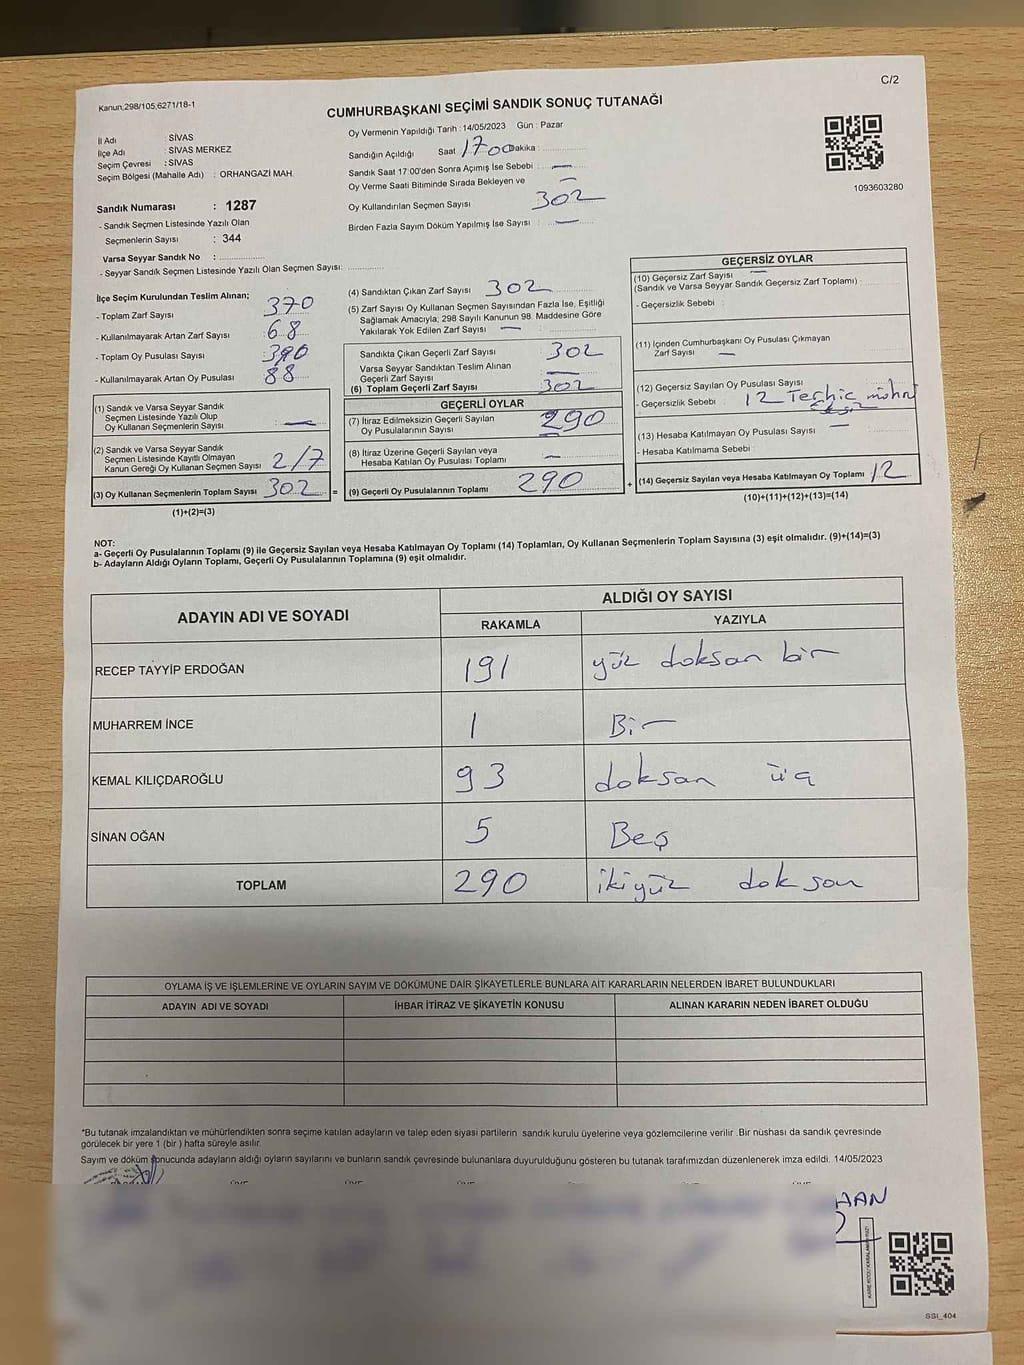 C/2
Kanun;298/105,6271/18-1
CUMHURBAŞKANI SEÇİMİ SANDIK SONUÇ TUTANAĞI
İl Adı : SİVAS
İlçe Adı : SİVAS MERKEZ
Seçim Çevresi : SİVAS
Seçim Bölgesi (Mahalle Adı) : ORHANGAZİ MAH.
Sandık Numarası : 1287
- Sandık Seçmen Listesinde Yazılı Olan
Seçmenlerin Sayısı : 344
Varsa Seyyar Sandık No :
- Seyyar Sandık Seçmen Listesinde Yazılı Olan Seçmen Sayısı:
Oy Vermenin Yapıldığı Tarih : 14/05/2023 Gün : Pazar
Sandığın Açıldığı Saat 17:00 Dakika :
Sandık Saat 17:00'den Sonra Açımış İse Sebebi : —
Oy Verme Saati Bitiminde Sırada Bekleyen ve —
Oy Kullandırılan Seçmen Sayısı 302
Birden Fazla Sayım Döküm Yapılmış İse Sayısı : —
1093603280
İlçe Seçim Kurulundan Teslim Alınan;
- Toplam Zarf Sayısı : 370
- Kullanılmayarak Artan Zarf Sayısı : 68
- Toplam Oy Pusulası Sayısı : 390
- Kullanılmayarak Artan Oy Pusulası : 88
(1) Sandık ve Varsa Seyyar Sandık
Seçmen Listesinde Yazılı Olup
Oy Kullanan Seçmenlerin Sayısı : —
(2) Sandık ve Varsa Seyyar Sandık
Seçmen Listesinde Kayıtlı Olmayan
Kanun Gereği Oy Kullanan Seçmen Sayısı 2/7
(3) Oy Kullanan Seçmenlerin Toplam Sayısı 302 =
(1)+(2)=(3)
(4) Sandıktan Çıkan Zarf Sayısı 302
(5) Zarf Sayısı Oy Kullanan Seçmen Sayısından Fazla İse, Eşitliği
Sağlamak Amacıyla, 298 Sayılı Kanunun 98. Maddesine Göre
Yakılarak Yok Edilen Zarf Sayısı — :
Sandıkta Çıkan Geçerli Zarf Sayısı 302
Varsa Seyyar Sandıktan Teslim Alınan
Geçerli Zarf Sayısı —
(6) Toplam Geçerli Zarf Sayısı 302
GEÇERLİ OYLAR
(7) İtiraz Edilmeksizin Geçerli Sayılan
Oy Pusulalarının Sayısı 290
(8) İtiraz Üzerine Geçerli Sayılan veya
Hesaba Katılan Oy Pusulası Toplamı —
(9) Geçerli Oy Pusulalarının Toplamı 290 +
GEÇERSİZ OYLAR
(10) Geçersiz Zarf Sayısı —
(Sandık ve Varsa Seyyar Sandık Geçersiz Zarf Toplamı) :
- Geçersizlik Sebebi :
(11) İçinden Cumhurbaşkanı Oy Pusulası Çıkmayan
Zarf Sayısı —
(12) Geçersiz Sayılan Oy Pusulası Sayısı
- Geçersizlik Sebebi : 12 Terhic mühr
(13) Hesaba Katılmayan Oy Pusulası Sayısı —
- Hesaba Katılmama Sebebi :
(14) Geçersiz Sayılan veya Hesaba Katılmayan Oy Toplamı 12
(10)+(11)+(12)+(13)=(14)
NOT:
a- Geçerli Oy Pusulalarının Toplamı (9) ile Geçersiz Sayılan veya Hesaba Katılmayan Oy Toplamı (14) Toplamları, Oy Kullanan Seçmenlerin Toplam Sayısına (3) eşit olmalıdır. (9)+(14)=(3)
b- Adayların Aldığı Oyların Toplamı, Geçerli Oy Pusulalarının Toplamına (9) eşit olmalıdır.
ADAYIN ADI VE SOYADI ALDIĞI OY SAYISI
RAKAMLA YAZIYLA
RECEP TAYYİP ERDOĞAN 191 yüz doksan bir
MUHARREM İNCE 1 Bir
KEMAL KILIÇDAROĞLU 93 doksan üç
SİNAN OĞAN 5 Beş
TOPLAM 290 ikiyüz doksan
OYLAMA İŞ VE İŞLEMLERİNE VE OYLARIN SAYIM VE DÖKÜMÜNE DAİR ŞİKAYETLERLE BUNLARA AİT KARARLARIN NELERDEN İBARET BULUNDUKLARI
ADAYIN ADI VE SOYADI İHBAR İTİRAZ VE ŞİKAYETİN KONUSU ALINAN KARARIN NEDEN İBARET OLDUĞU
*Bu tutanak imzalandıktan ve mühürlendikten sonra seçime katılan adayların ve talep eden siyasi partilerin sandık kurulu üyelerine veya gözlemcilerine verilir .Bir nüshası da sandık çevresinde
görülecek bir yere 1 (bir ) hafta süreyle asılır.
Sayım ve döküm sonucunda adayların aldığı oyların sayılarını ve bunların sandık çevresinde bulunanlara duyurulduğunu gösteren bu tutanak tarafımızdan düzenlenerek imza edildi. 14/05/2023
SSI_404